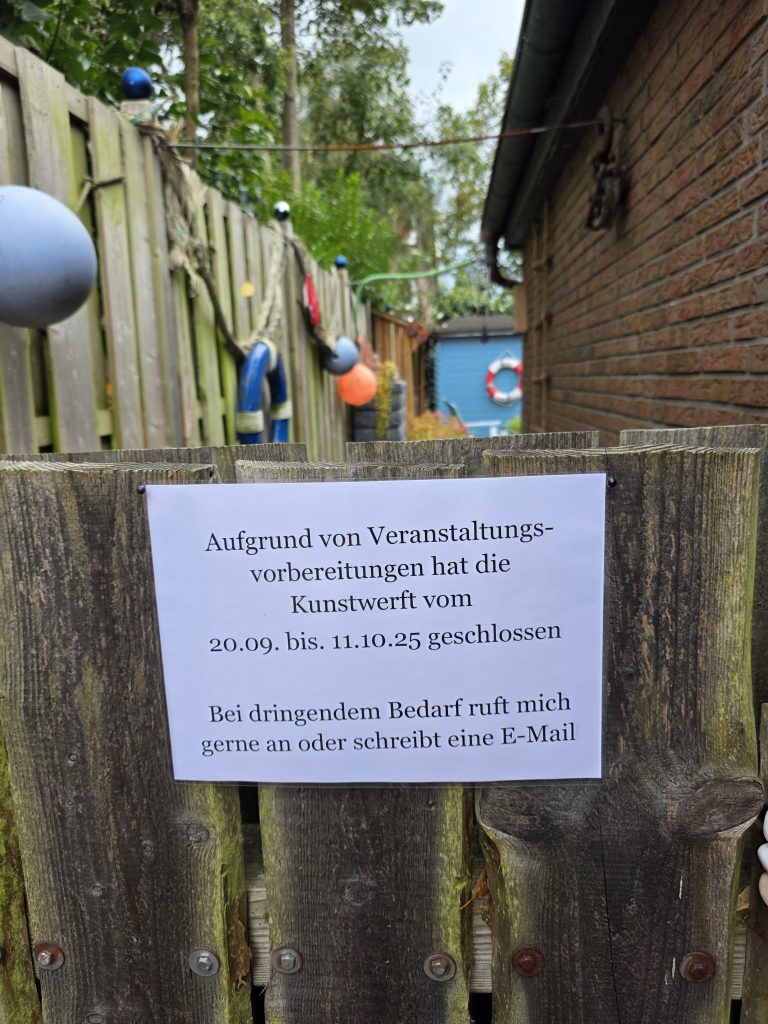 Aufgrund von Veranstaltungs-
vorbereitungen hat die
Kunstwerft vom
20.09. bis. 11.10.25 geschlossen
Bei dringendem Bedarf ruft mich
gerne an oder schreibt eine E-Mail